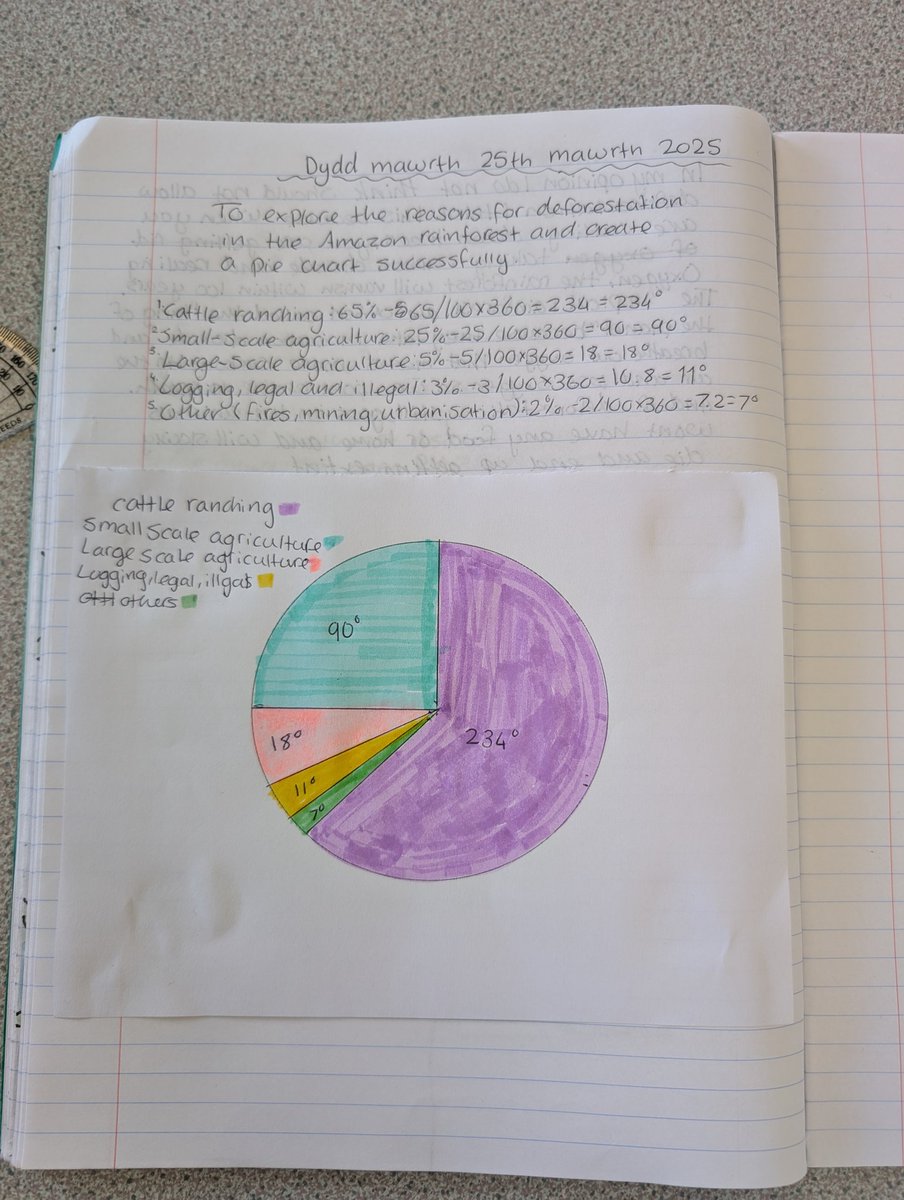 Dydd mawrth 25th mawrth 2025
To explore the reasons for deforestation
in the Amazon rainforest and create
a pie chart successfully
1 Cattle ranching: 65% - 65/100x360 = 234 = 234°
2 Small-Scale agriculture: 25% - 25/100x360 = 90 = 90°
3 Large-Scale agriculture: 5% - 5/100x360 = 18 = 18°
4 Logging, legal and illegal: 3% - 3/100x360 = 10.8 = 11°
5 Other (fires, mining urbanisation): 2% - 2/100x360 = 7.2 = 7°
cattle ranching
Small Scale agriculture
Large scale agriculture
Logging, legal, illgal
others
90°
234°
18°
11°
7°